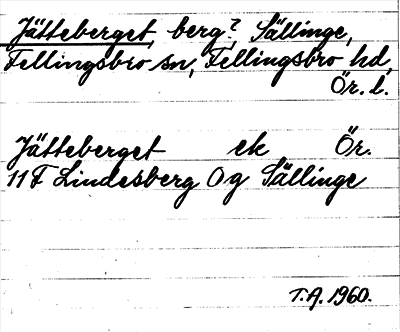 Jätteberget, berg? Sällinge,
Fellingsbro sn, Fellingsbro hd,
Ör. l.
Jätteberget ek Ör.
11 F Lindesberg Og Sällinge
T.A. 1960.